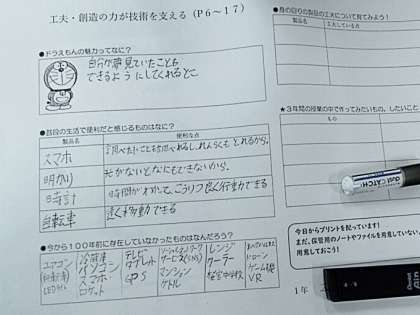 工夫・創造の力が技術を支える(P6～17)
●ドラえもんの魅力ってなに?
自分が夢見ていたことも
できるようにしてくれるとこ
●普段の生活で便利だと感じるものはなに?
製品名
便利な点
スマホ
調べたいことも調べれるし、れんらくもとれるから。
明かり
光がないとなにもできないから。
時計
時間がわかって、こうりつ良く行動できる
自転車
速く移動できる
●今から100年前に存在していなかったものはなんだろう?
エアコン
冷蔵庫
パソコン
スマホ
ロケット
テレビ
タブレット
GPS
マンション
ケトル
レンジ
クーラー
ドローン
ゲーム機
VR
●身の回りの製品の工夫について育てみよう!
製品名
工夫している点
★3年間の授業の中で作ってみたいもの、したいこと
もの
今日からプリントを配っています!
まだ、保管用のノートやファイルを用意していない
用意しておこう!
1年